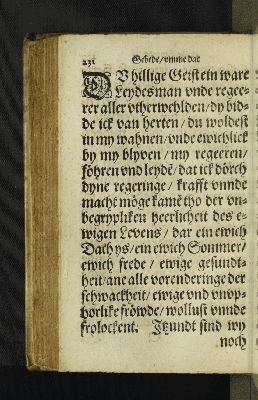 231 Gebede/ vmme dat
DV hillige Geist ein ware
Leydesman vnde regee-
rer aller vtherwehlden/ dy bid-
de ick van herten/ du woldest
in my wahnen/ vnde ewichlick
by my blyven / my regeeren/
föhren vnd leydē/ dat ick dörch
dyne regeringe/ krafft vnnde
macht möge kamē tho der vn-
begrypliken heerlicheit des e-
wigen Levens/ dar ein ewich
Dach ys/ ein ewich Sommer/
ewich frede/ ewige gesundt-
heit/ ane alle vorenderinge der
schwackheit/ ewige vnd vnvp-
horlike fröwde/ wollust vnnde
frolockent. Itzundt sind wy
noch